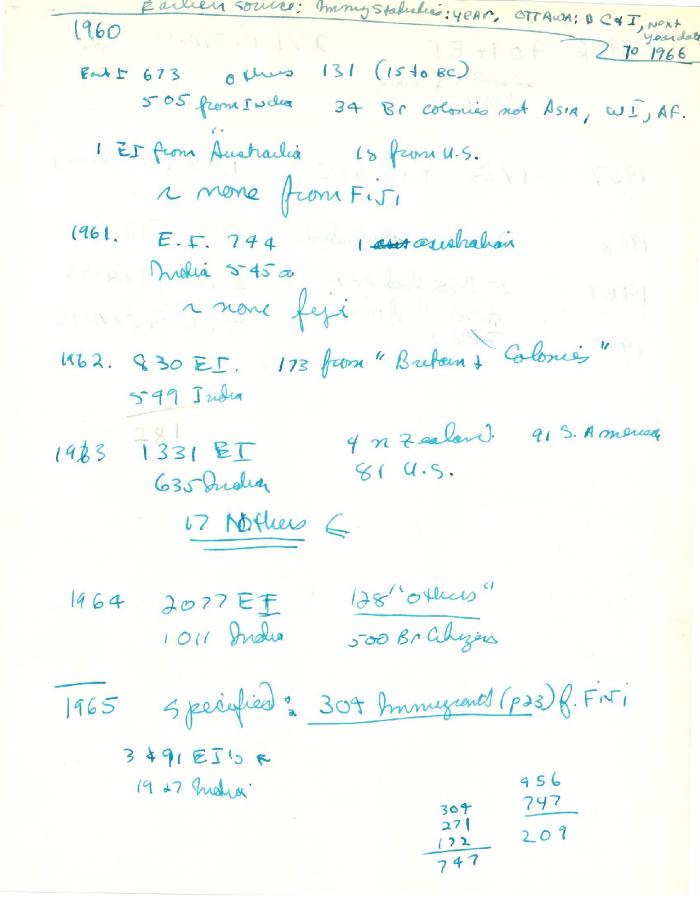 Earlier source: Immig Statistics: year, OTTAWA: D C & I, next
year date
to 1966
1960
East I 673 others 131 (15 to BC)
505 from India 34 Br colonies not Asia, WI, AF.
1 EI from Australia 18 from U.S.
none from Fiji
1961. E.I. 744 1 australian
India 545
none feji
1962. 830 EI. 173 from "Britain + Colonies"
599 India
1963 1331 EI 4 n Zealand. 91 S. America
635 India 81 U.S.
17 Nothers
1964 2077 EI 128 "others"
1011 India 500 Br Citizens
1965 Specified: 304 Immigrants (p23) f. Fiji
3491 EI's
1927 India
304
271
172
747
956
747
209